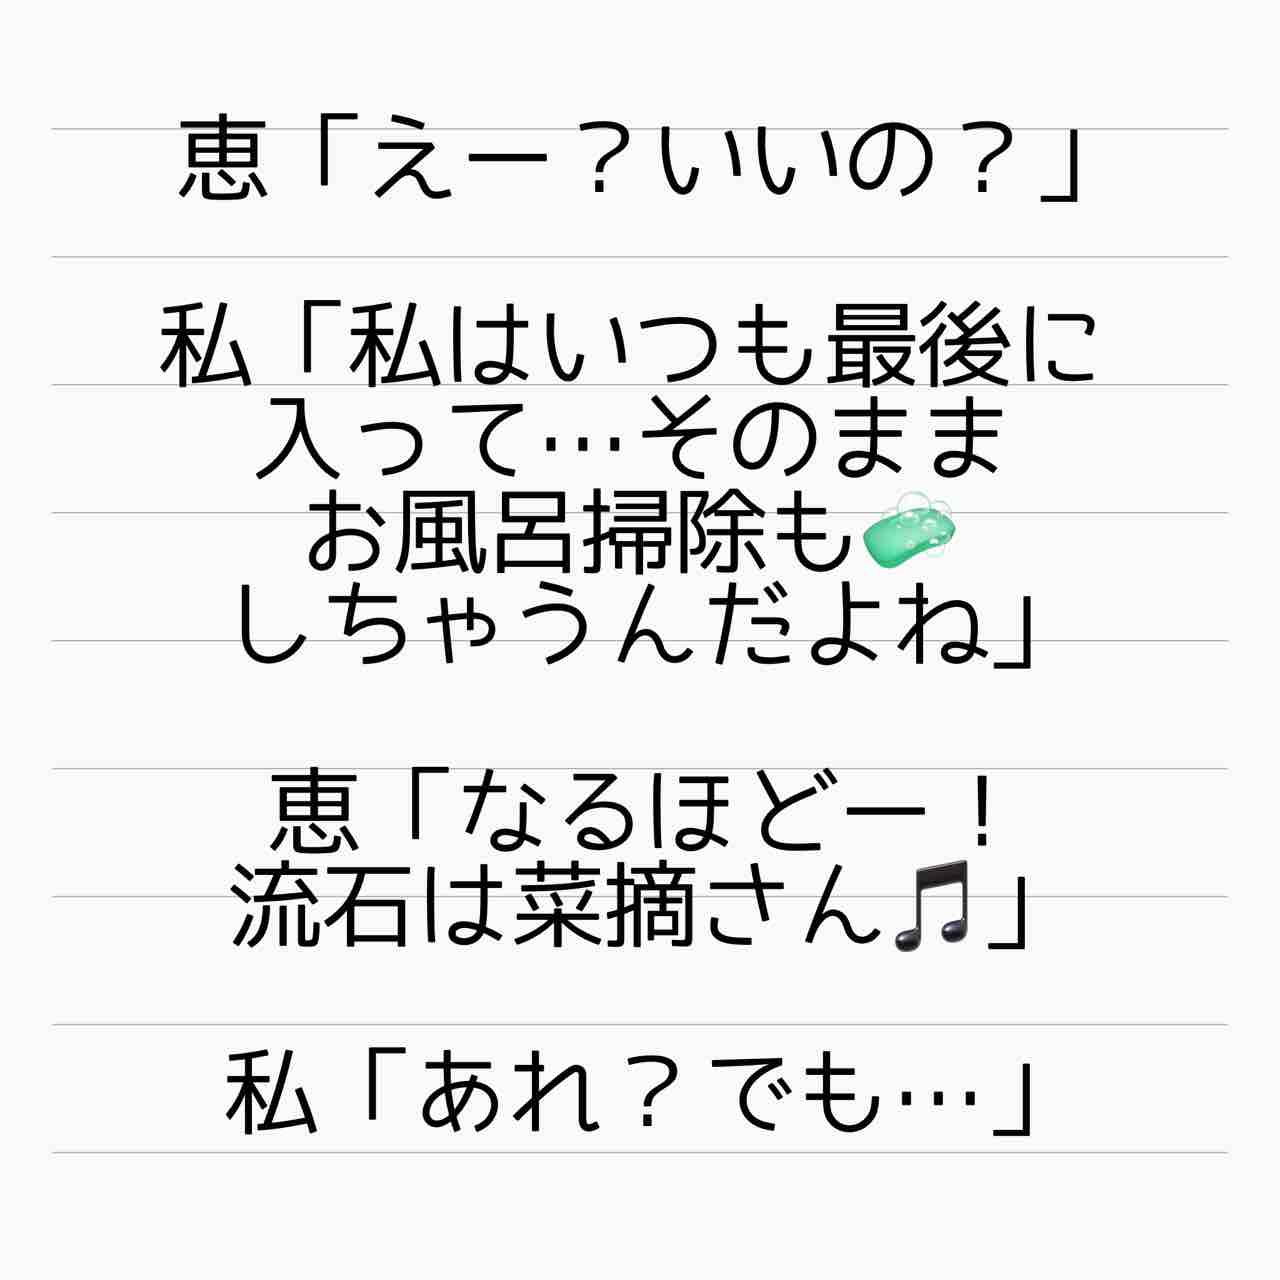 恵「えー？いいの？」
私「私はいつも最後に
入って…そのまま
お風呂掃除も🧼
しちゃうんだよね」
恵「なるほどー！
流石は菜摘さん🎵」
私「あれ？でも…」